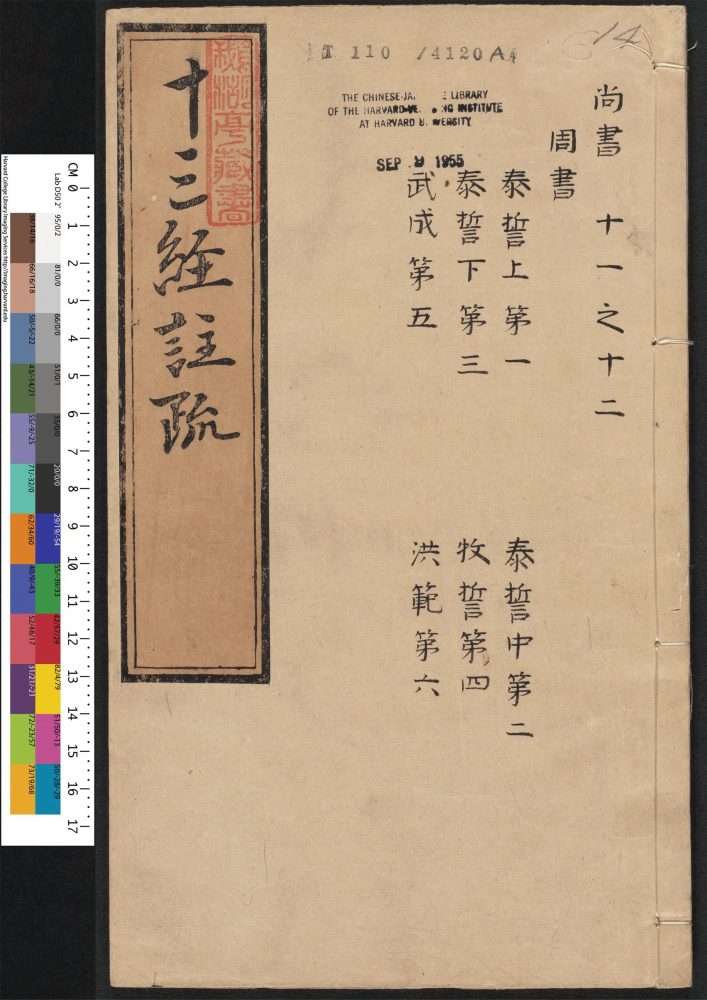 T 110 /4120 A4
14
THE CHINESE-JA. E LIBRARY
OF THE HARVARD- NG INSTITUTE
AT HARVARD U. VERSITY
SEP 9 1955
尚書 十一之十二
周書
泰誓上第一 泰誓中第二
泰誓下第三 牧誓第四
武成第五 洪範第六
十三經註疏
藏書
CM 0 1 2 3 4 5 6 7 8 9 10 11 12 13 14 15 16 17
Lab D50 2° 95/0/2 81/0/0 66/0/0 51/0/1 35/0/0 20/0/0 29/19/-54 55/-39/33 42/57/29 82/4/79 51/50/-13 50/-28/-29
38/14/16 66/16/18 50/-5/-22 43/-14/21 55/9/-25 71/-32/0 62/34/60 40/9/-43 52/48/17 31/21/-21 72/-23/57 73/19/68
Harvard College Library Imaging Services http://imaging.harvard.edu